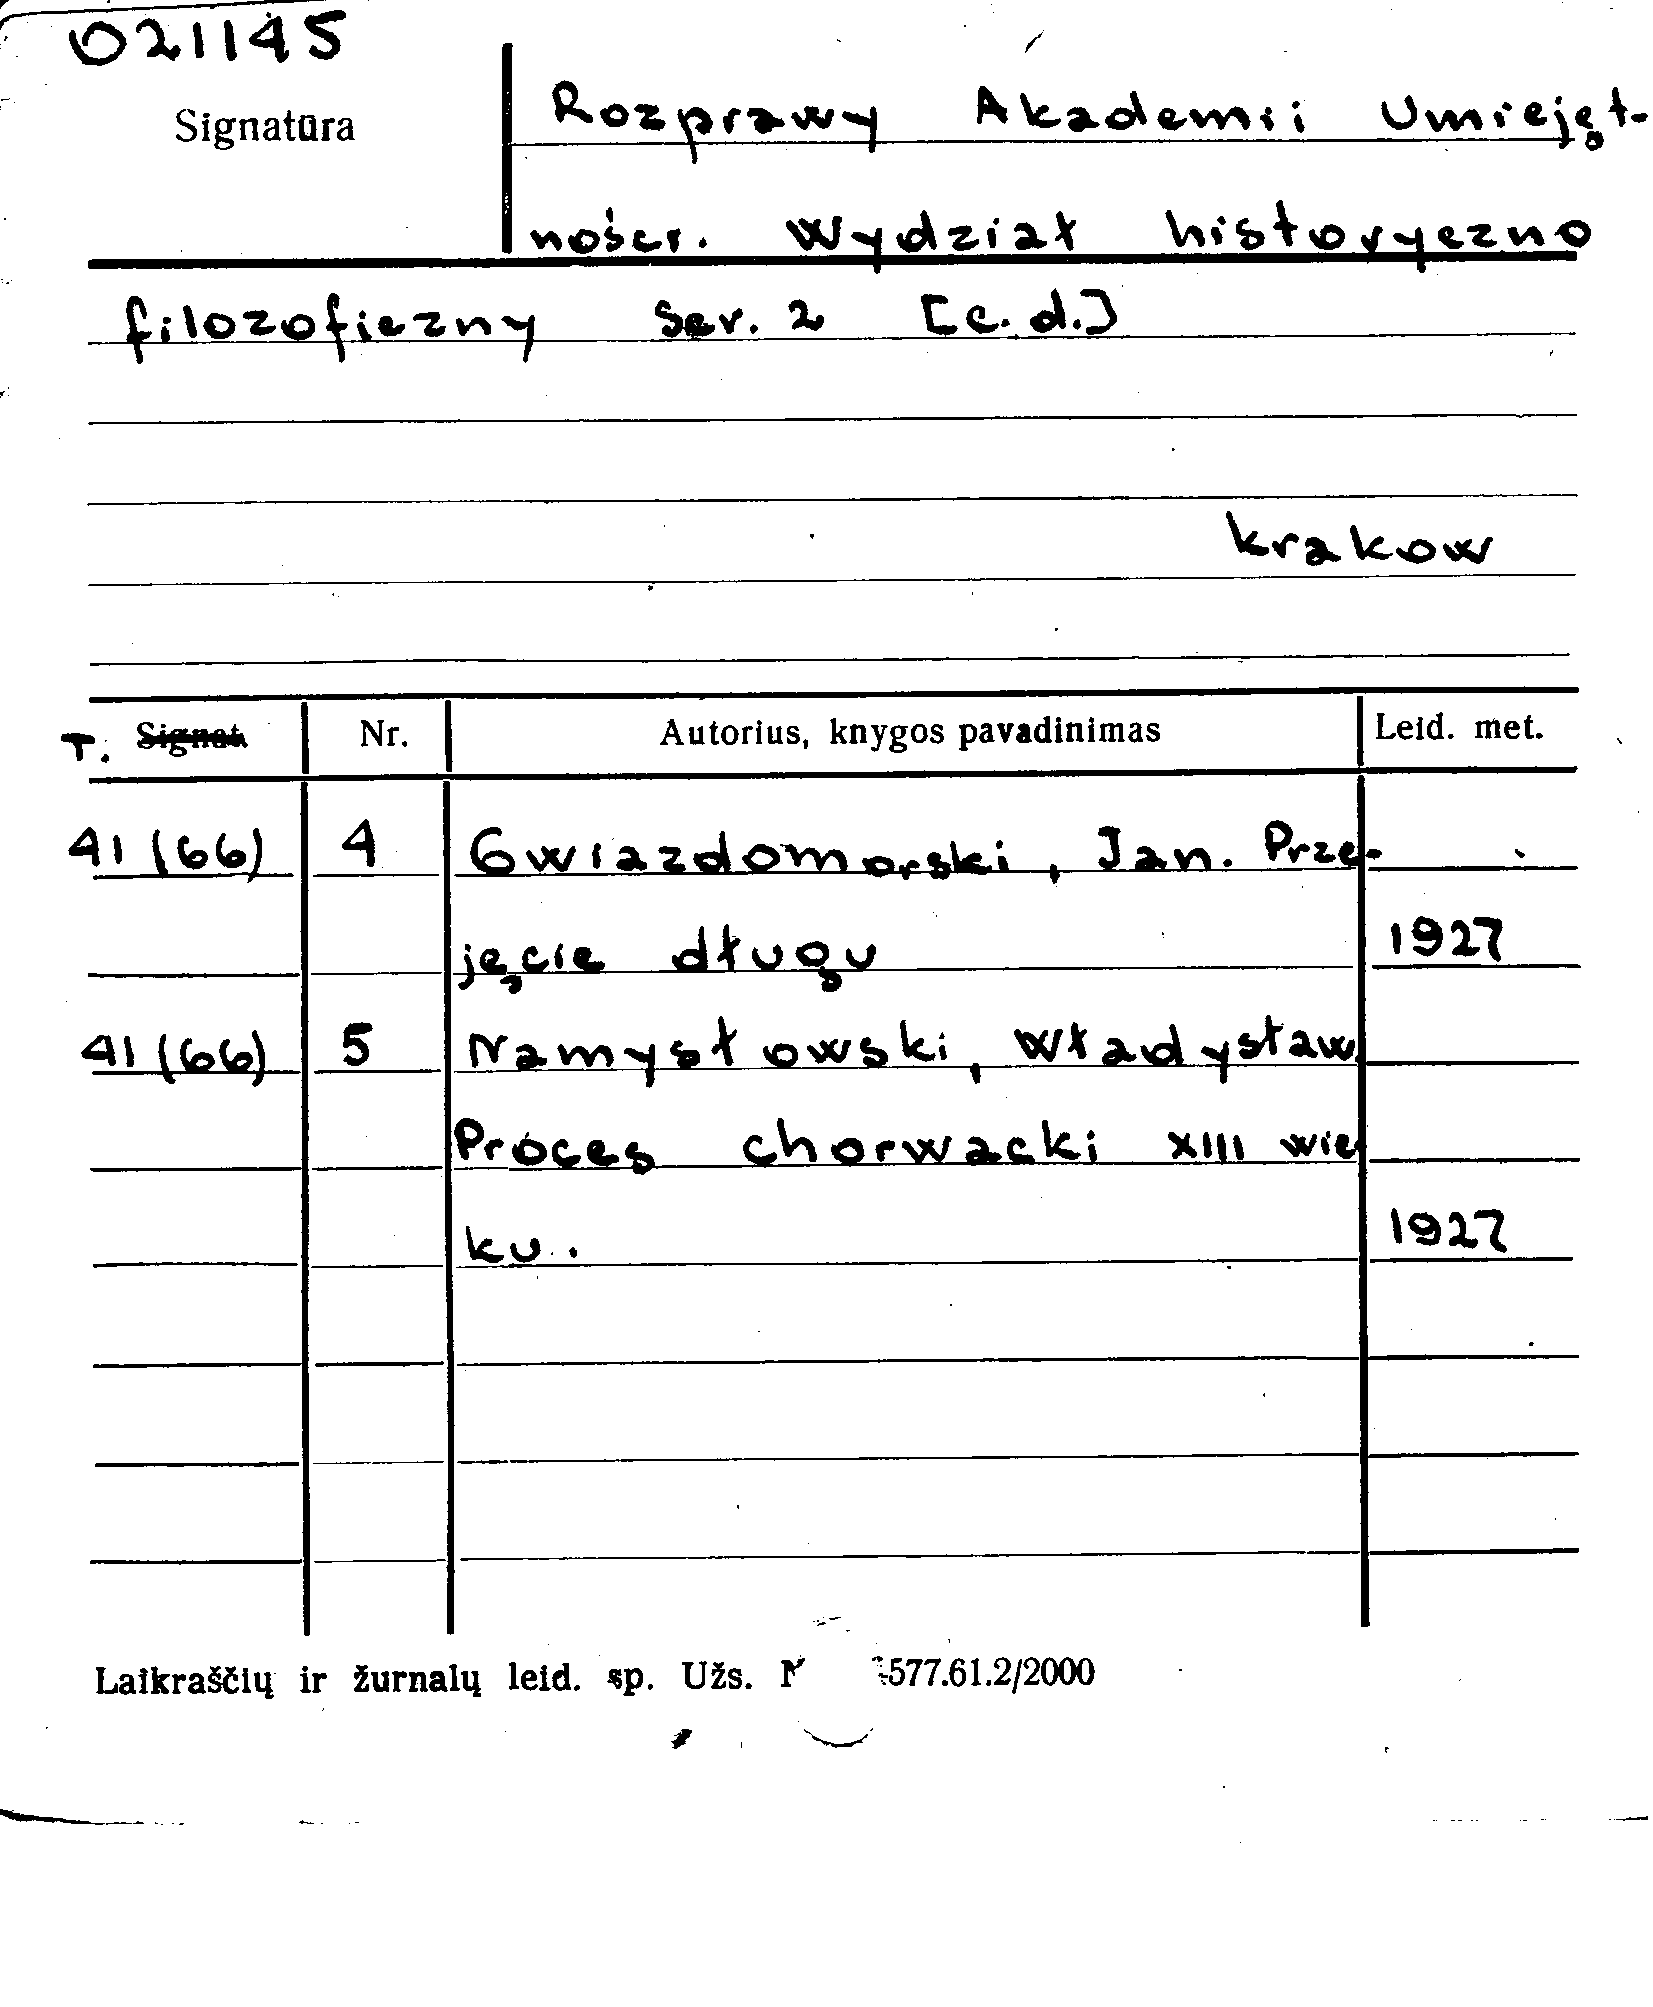 021145
Signatūra
Rozprawy Akademii Umiejęt-
ności. Wydział historyczno
filozoficzny Ser. 2 [c.d.]
krakow
T. Signat. Nr. Autorius, knygos pavadinimas Leid. met.
41 (66) 4 Gwiazdomorski, Jan. Prze-
jęcie długu 1927
41 (66) 5 Namysłowski, Władysław.
Proces chorwacki XIII wie
ku. 1927
Laikraščių ir žurnalų leid. sp. Užs. 577.61.2/2000